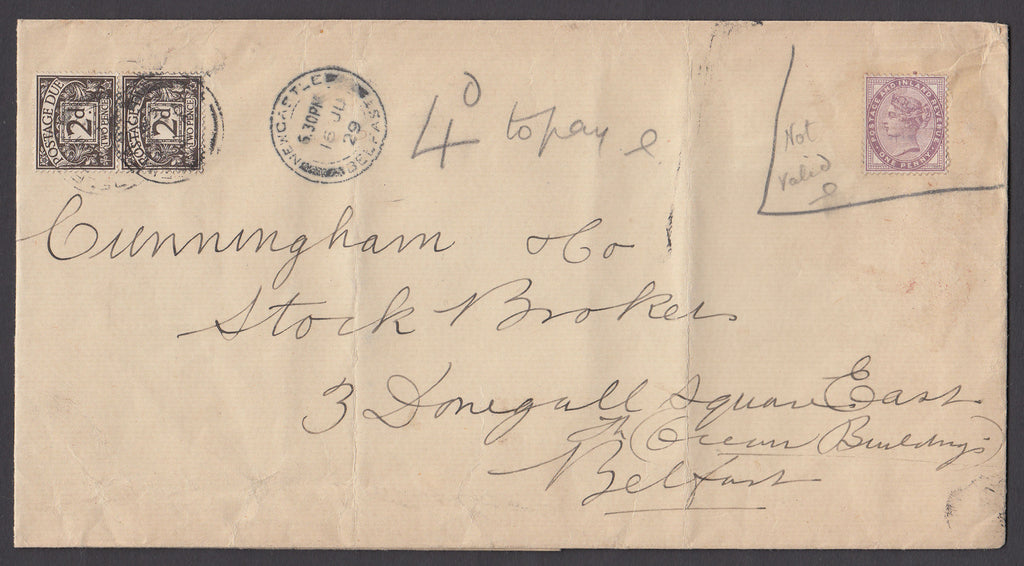 POSTAGE DUE
2d.
TWO PENCE
POSTAGE DUE
2d.
TWO PENCE
NEWCASTLE
6.30PM
16 JU
29
BELFAST
4d to pay
POSTAGE AND INLAND REVENUE
ONE PENNY
Not
valid
Cunningham & Co
Stock Brokers
3 Donegall Square East
(Ocean Buildings)
Belfast